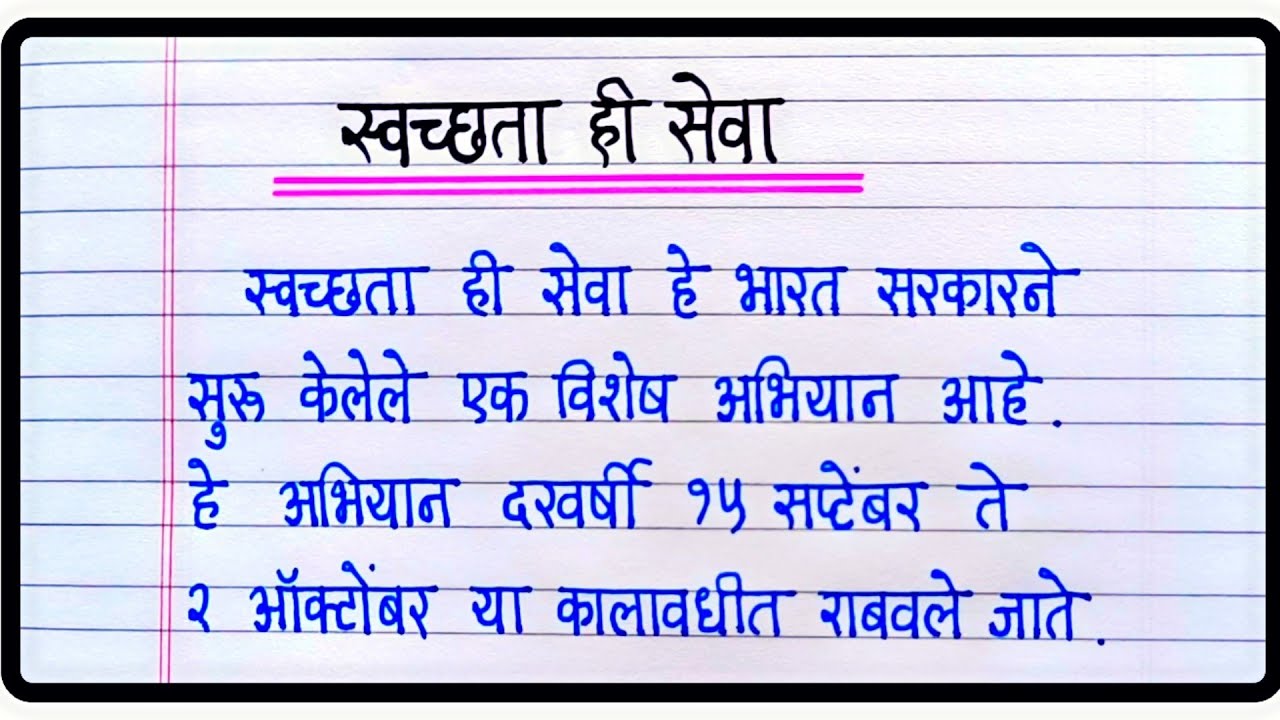 स्वच्छता ही सेवा
स्वच्छता ही सेवा हे भारत सरकारने
सुरू केलेले एक विशेष अभियान आहे.
हे अभियान दरवर्षी १५ सप्टेंबर ते
२ ऑक्टोंबर या कालावधीत राबवले जाते.